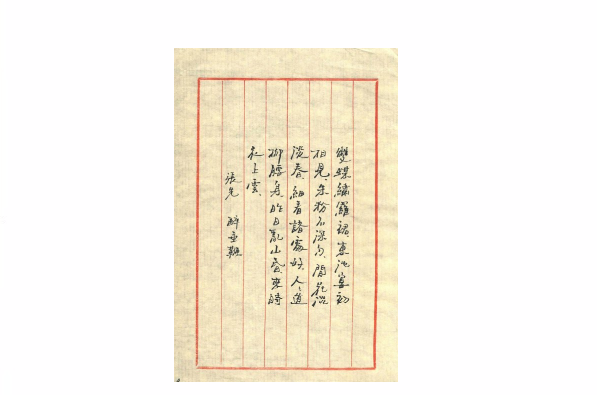 雙蝶繡羅裙東池宴初
相見、朱粉不深勻、閒花淡
淡春、細看諸處好、人々道
柳腰身、昨日亂山昏、來時
衣上雲、
張先 醉垂鞭